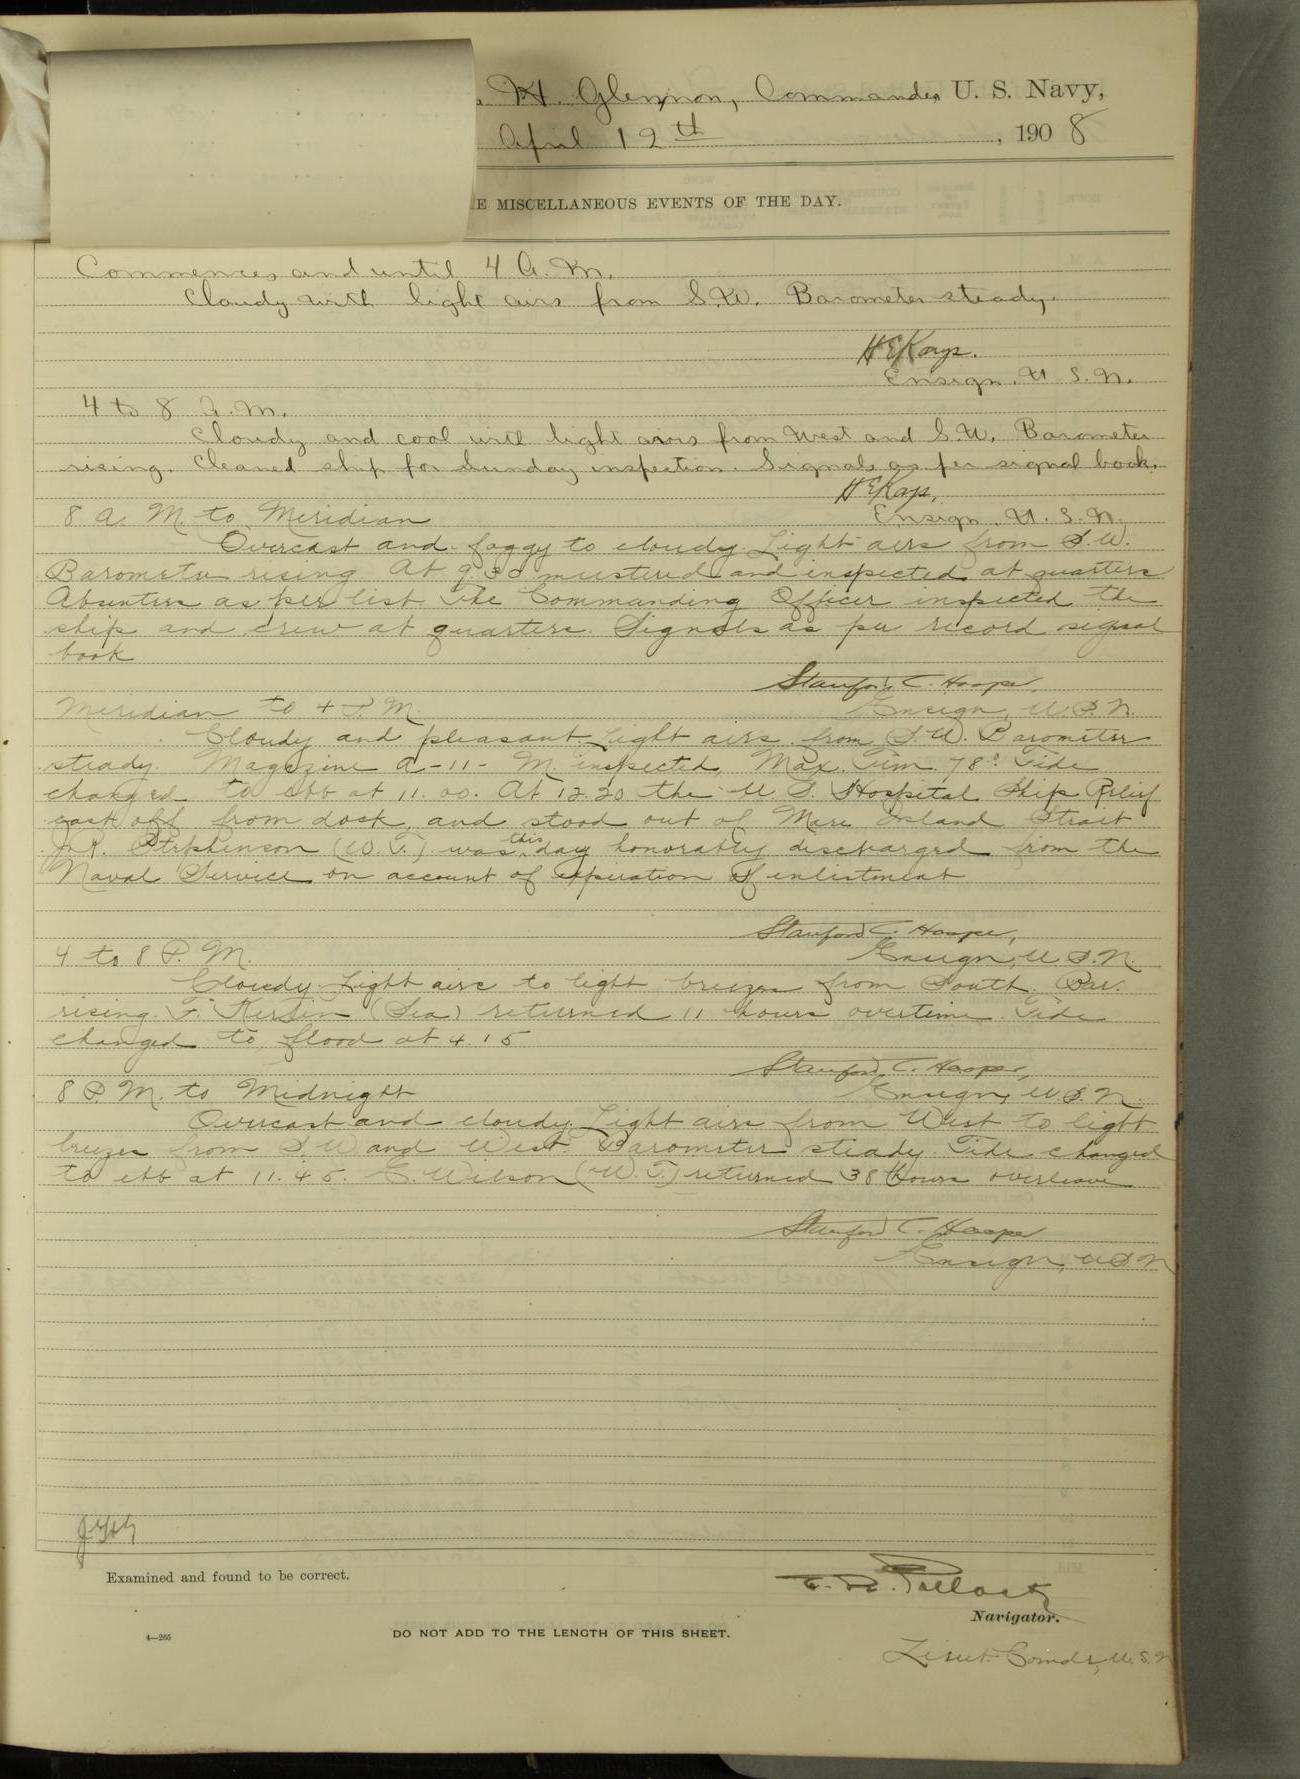 . H. Glennon, Commander, U. S. Navy,
April 12th, 1908
E MISCELLANEOUS EVENTS OF THE DAY.
Commences and until 4 A. M.
Cloudy with light airs from S.W. Barometer steady.
H E Kays.
Ensign. U. S. N.
4 to 8 A. M.
Cloudy and cool with light airs from West and S.W. Barometer
rising. Cleaned ship for Sunday inspection. Signals as per signal book.
H E Kays.
Ensign. U. S. N.
8 A. M. to Meridian
Overcast and foggy to cloudy. Light airs from S.W.
Barometer rising. At 9.30 mustered and inspected at quarters
Absentees as per list The Commanding Officer inspected the
ship and crew at quarters. Signals as per record signal
book
Stanford C. Hooper.
Ensign, U. S. N.
Meridian to 4 P. M.
Cloudy and pleasant. Light airs from S.W. Barometer
steady. Magazine A-11-M. inspected, Max. Tem. 78°. Tide
changed to ebb at 11.00. At 12.20 the U. S. Hospital Ship Relief
cast off from dock, and stood out of Mare Island Strait
J.R. Stephenson (W.T.) was this day honorably discharged from the
Naval Service on account of expiration of enlistment
Stanford C. Hooper,
Ensign, U. S. N.
4 to 8 P. M.
Cloudy. Light airs to light breezes from South. Bar.
rising. F. Kersten (Sea) returned 11 hours overtime. Tide
changed to flood at 4.15
Stanford C. Hooper,
Ensign, U. S. N.
8 P. M. to Midnight
Overcast and cloudy. Light airs from West to light
breezes from S.W and West. Barometer steady. Tide changed
to ebb at 11.45. C. Wilson (W.T.) returned 38 hours overleave
Stanford C. Hooper
Ensign, U S N
JHG
Examined and found to be correct.
Navigator.
4—265
DO NOT ADD TO THE LENGTH OF THIS SHEET.
Lieut. Comdr, U. S. N